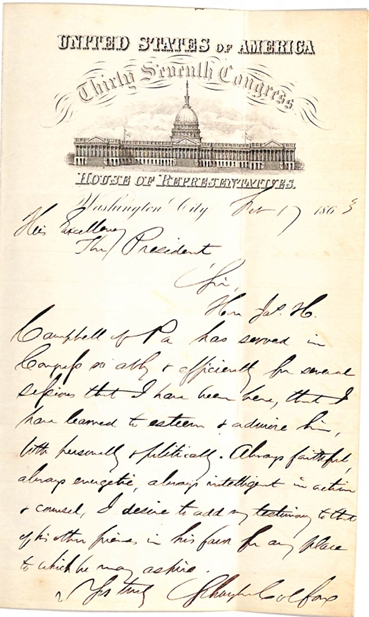 UNITED STATES OF AMERICA
Thirty Seventh Congress
HOUSE OF REPRESENTATIVES.
Washington City Feb 17 1863
His Excellency
The President
Sir,
Hon Jas. H.
Campbell of Pa has served in
Congress so ably & efficiently for several
sessions that I have been here, that I
have learned to esteem & admire him,
both personally & politically. Always faithful,
always energetic, always intelligent in action
& counsel, I desire to add my testimony to that
of his other friends, in his favor for any place
to which he may aspire.
Yrs truly Schuyler Colfax